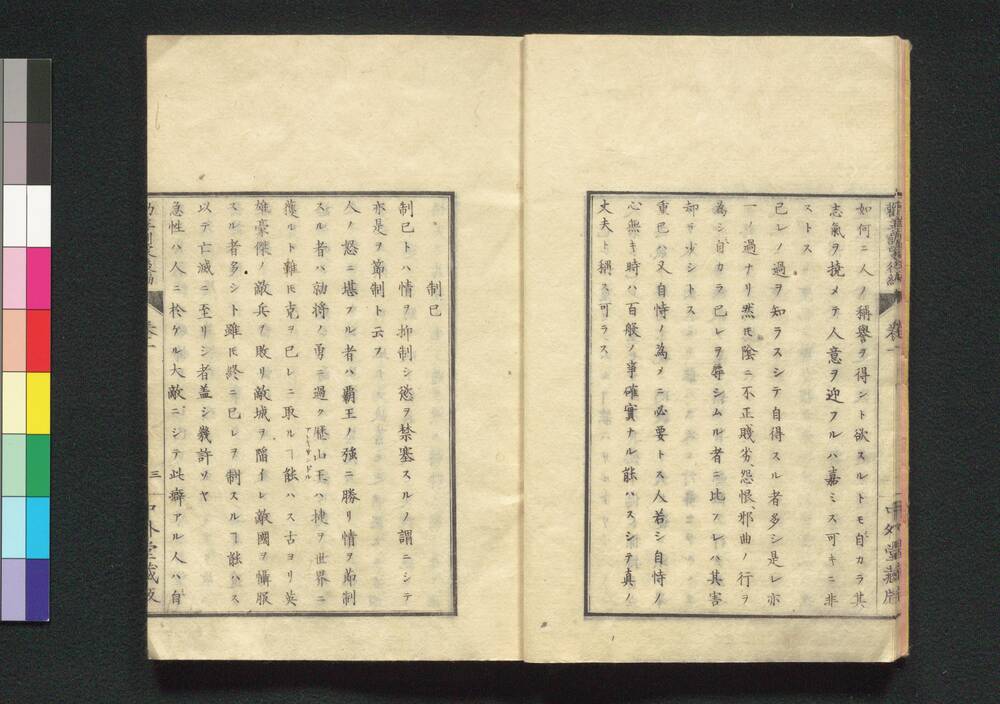 如何ニ人ノ稱譽ヲ得ント欲スルトモ自カラ其
志氣ヲ撓メテ人意ヲ迎フルハ嘉ミス可キニ非
ストス
己レノ過ヲ知ラスシテ自得スル者多シ是レ亦
一ノ過ナリ然𪜈陰ニ不正賤劣、怨恨、邪曲ノ行ヲ
為シ自カラ己レヲ辱シムル者ニ比スレハ其害
却テ少シトス
重己ハ又自恃ノ為メニ必要トス人若シ自恃ノ
心無キ時ハ百般ノ事確實ナル能ハスシテ真ノ
丈夫ト稱ス可ラス
卷一
中外堂藏版
制己
制己トハ情ヲ抑制シ慾ヲ禁塞スルノ謂ニシテ
亦是ヲ節制ト云フ
人ノ怒ニ堪フル者ハ覇王ノ強ニ勝リ情ヲ節制
スル者ハ勍将ノ勇ニ過ク歴山王ハ捷ヲ世界ニ
アレキサンドル
獲ルト雖𪜈克ヲ己レニ取ルヿ能ハス古ヨリ英
雄豪傑ノ敵兵ヲ敗リ敵城ヲ陥イレ敵國ヲ懾服
スル者多シト雖𪜈終ニ己レヲ制スルヿ能ハス
以テ亡滅ニ至リシ者盖シ幾許ソヤ
急性ハ人ニ於ケル大敵ニシテ此癖アル人ハ自
卷一
三
中外堂藏版